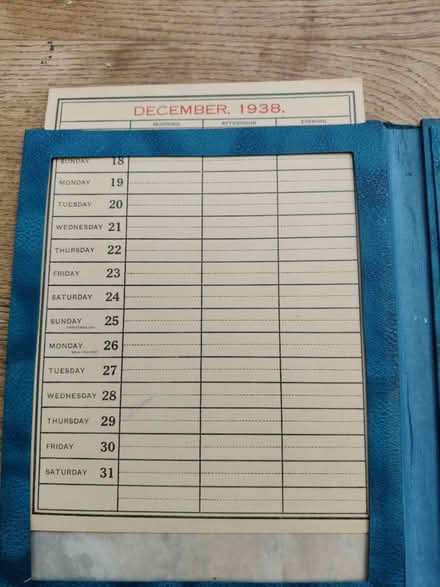 DECEMBER, 1938.
MORNING. AFTERNOON EVENING.
SUNDAY 18
MONDAY 19
TUESDAY 20
WEDNESDAY 21
THURSDAY 22
FRIDAY 23
SATURDAY 24
SUNDAY 25
MONDAY 26
TUESDAY 27
WEDNESDAY 28
THURSDAY 29
FRIDAY 30
SATURDAY 31